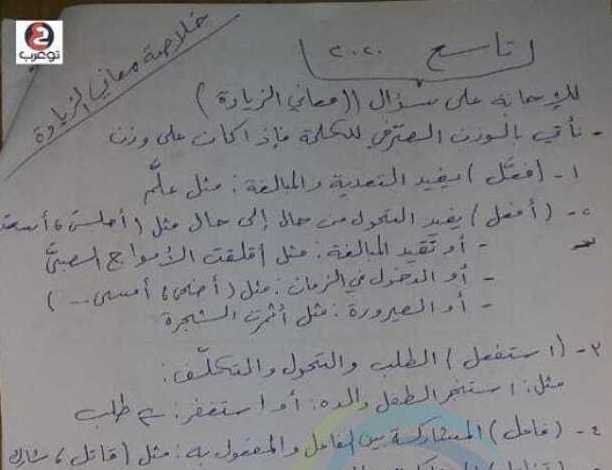 توعرب
خلاصة معاني الزيادة
تاسع ٢٠٢٠
للإجابة على سؤال ((معاني الزيادة)
- نأتي بالوزن الصرفي للكلمة فإذا كان على وزن
١- (فعَّل) يفيد التعدية والمبالغة: مثل علَّم
٢- (أفعل) يفيد التحول من حال إلى حال مثل (أفلس،
- أو تفيد المبالغة: مثل أقلقت الأمواج الصبيَّ
- أو الدخول في الزمان: مثل (أضحى، أمسى ...)
- أو الصيرورة: مثل أثمرت الشجرة
٣- (استفعل) الطلب والتحول والتكلّف:
مثل: الطفل والده: أو استغفر: طلب
٤- (فاعل) المشاركة بين الفاعل والمفعول به: مثل (قاتل، شارك